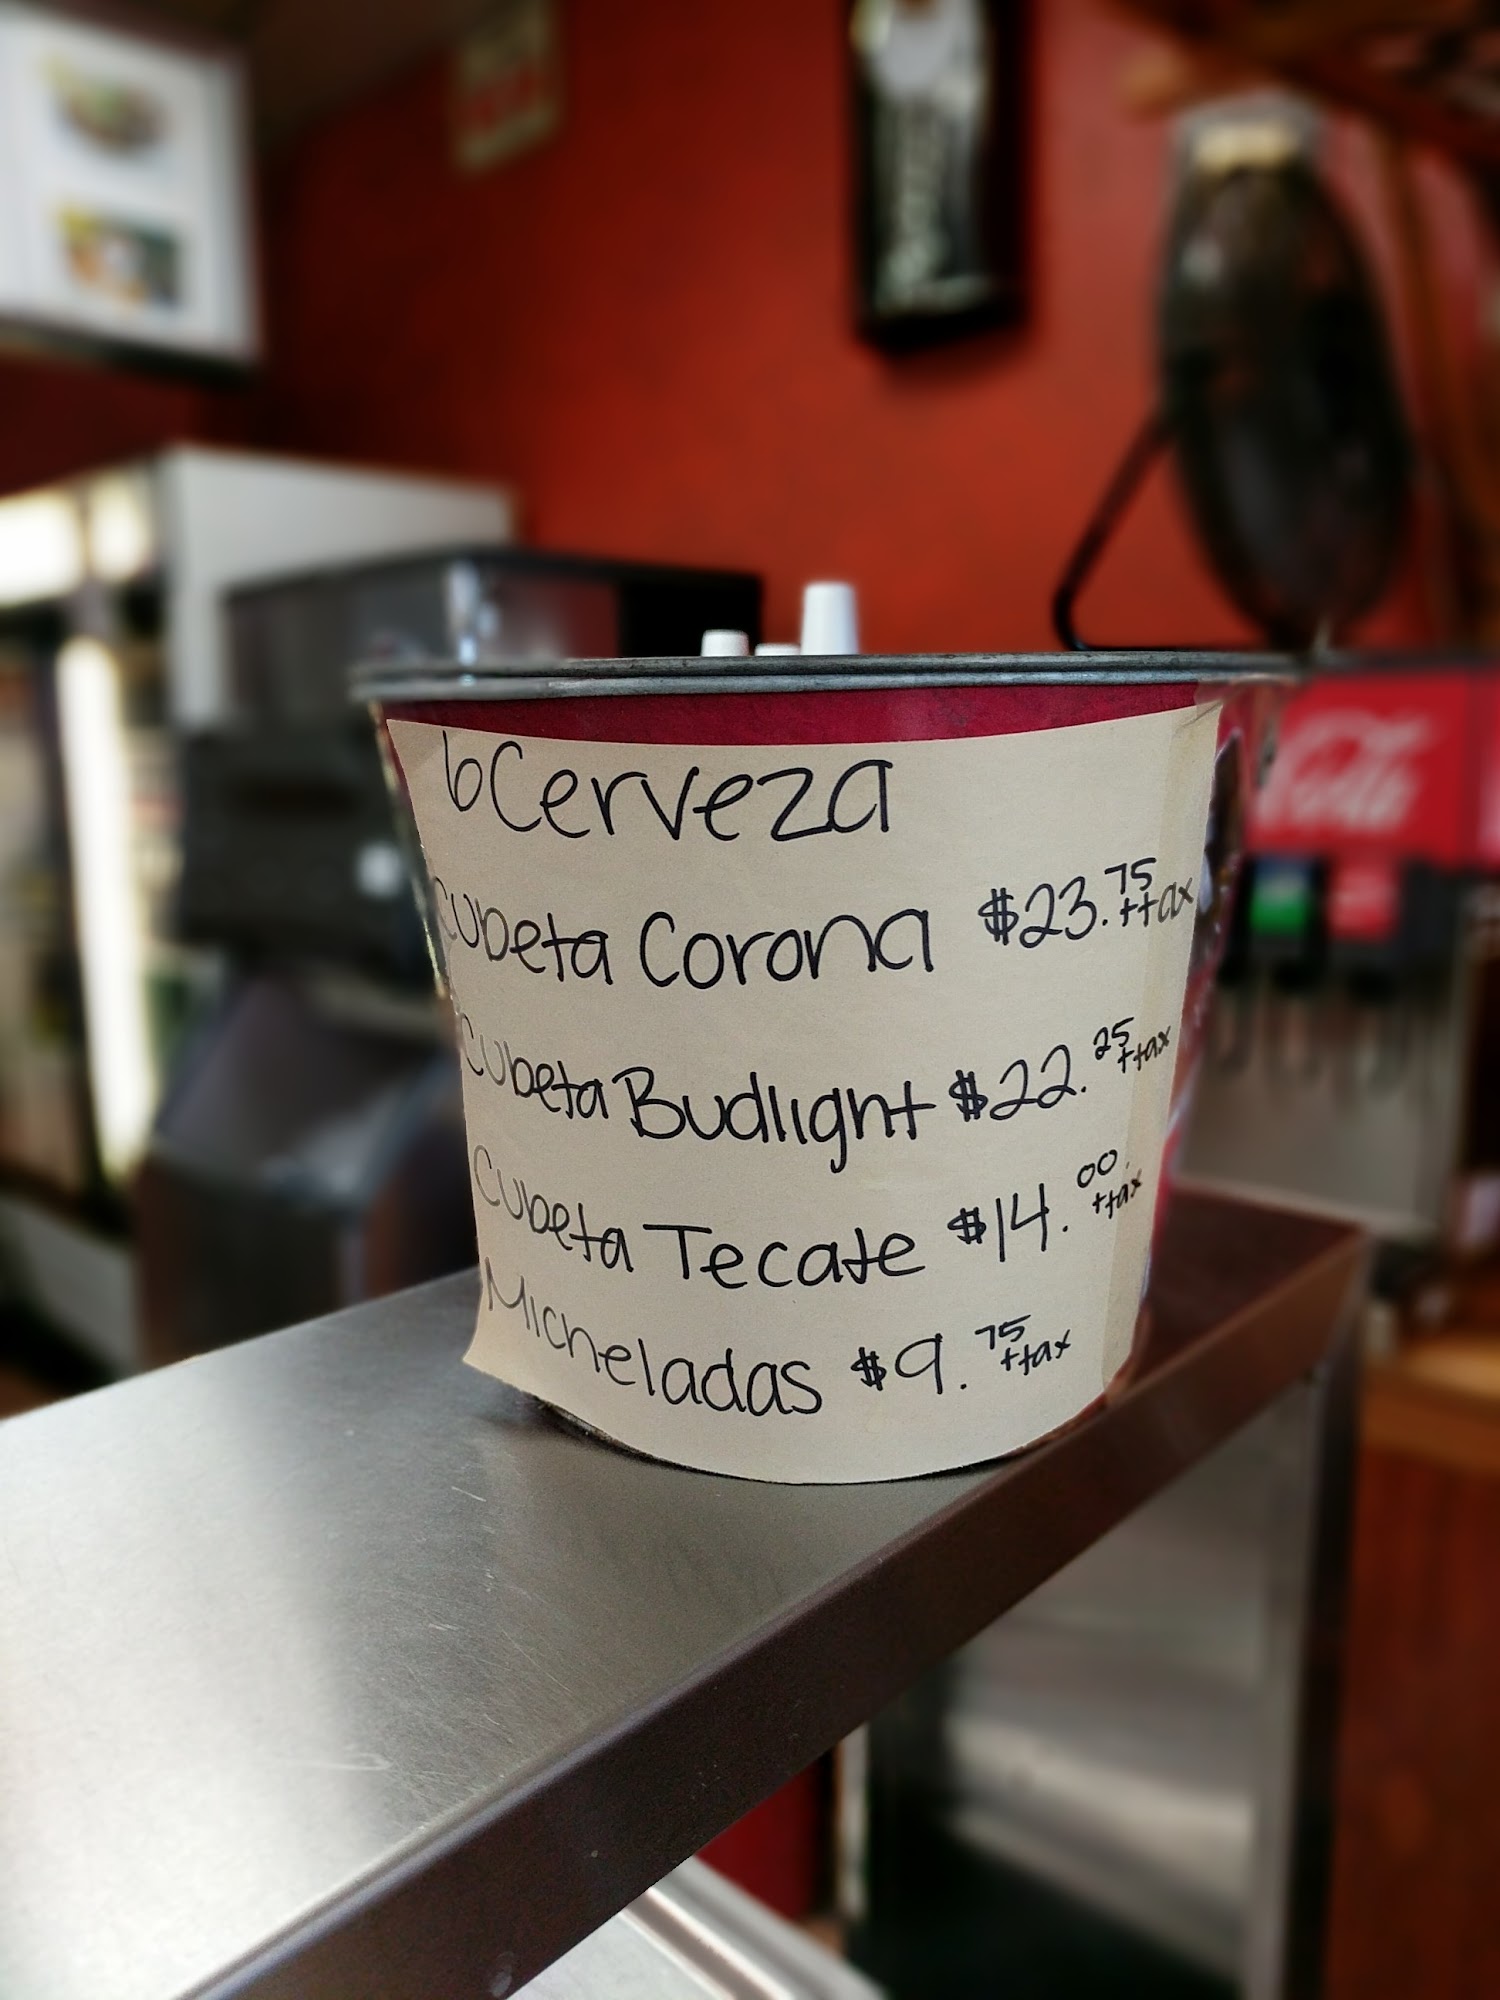 6 Cerveza
Cubeta Corona $23.75 +tax
Cubeta Budlight $22.25 +tax
Cubeta Tecate $14.00 +tax
Micheladas $9.75 +tax
Coca-Cola